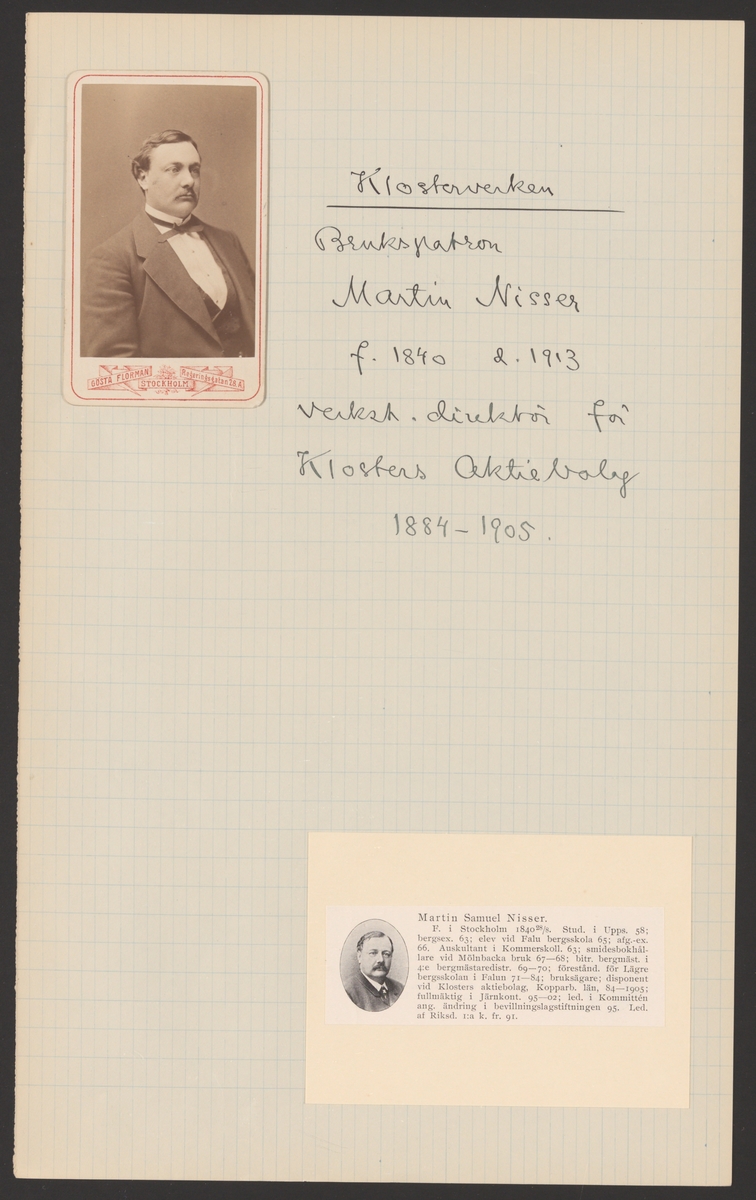 Klosterverken
Brukspatron
Martin Nisser
f. 1840 d. 1913
verkst. direktör för
Klosters Aktiebolag
1884-1905.
GÖSTA FLORMAN
STOCKHOLM.
Regeringsgatan 28.A.
Martin Samuel Nisser.
F. i Stockholm 1840 28/8. Stud. i Upps. 58;
bergsex. 63; elev vid Falu bergsskola 65; afg.-ex.
66. Auskultant i Kommerskoll. 63; smidesbokhål-
lare vid Mölnbacka bruk 67—68; bitr. bergmäst. i
4:e bergmästaredistr. 69—70; förestånd. för Lägre
bergsskolan i Falun 71—84; bruksägare; disponent
vid Klosters aktiebolag, Kopparb. län, 84—1905;
fullmäktig i Järnkont. 95—02; led. i Kommittén
ang. ändring i bevillningslagstiftningen 95. Led.
af Riksd. 1:a k. fr. 91.